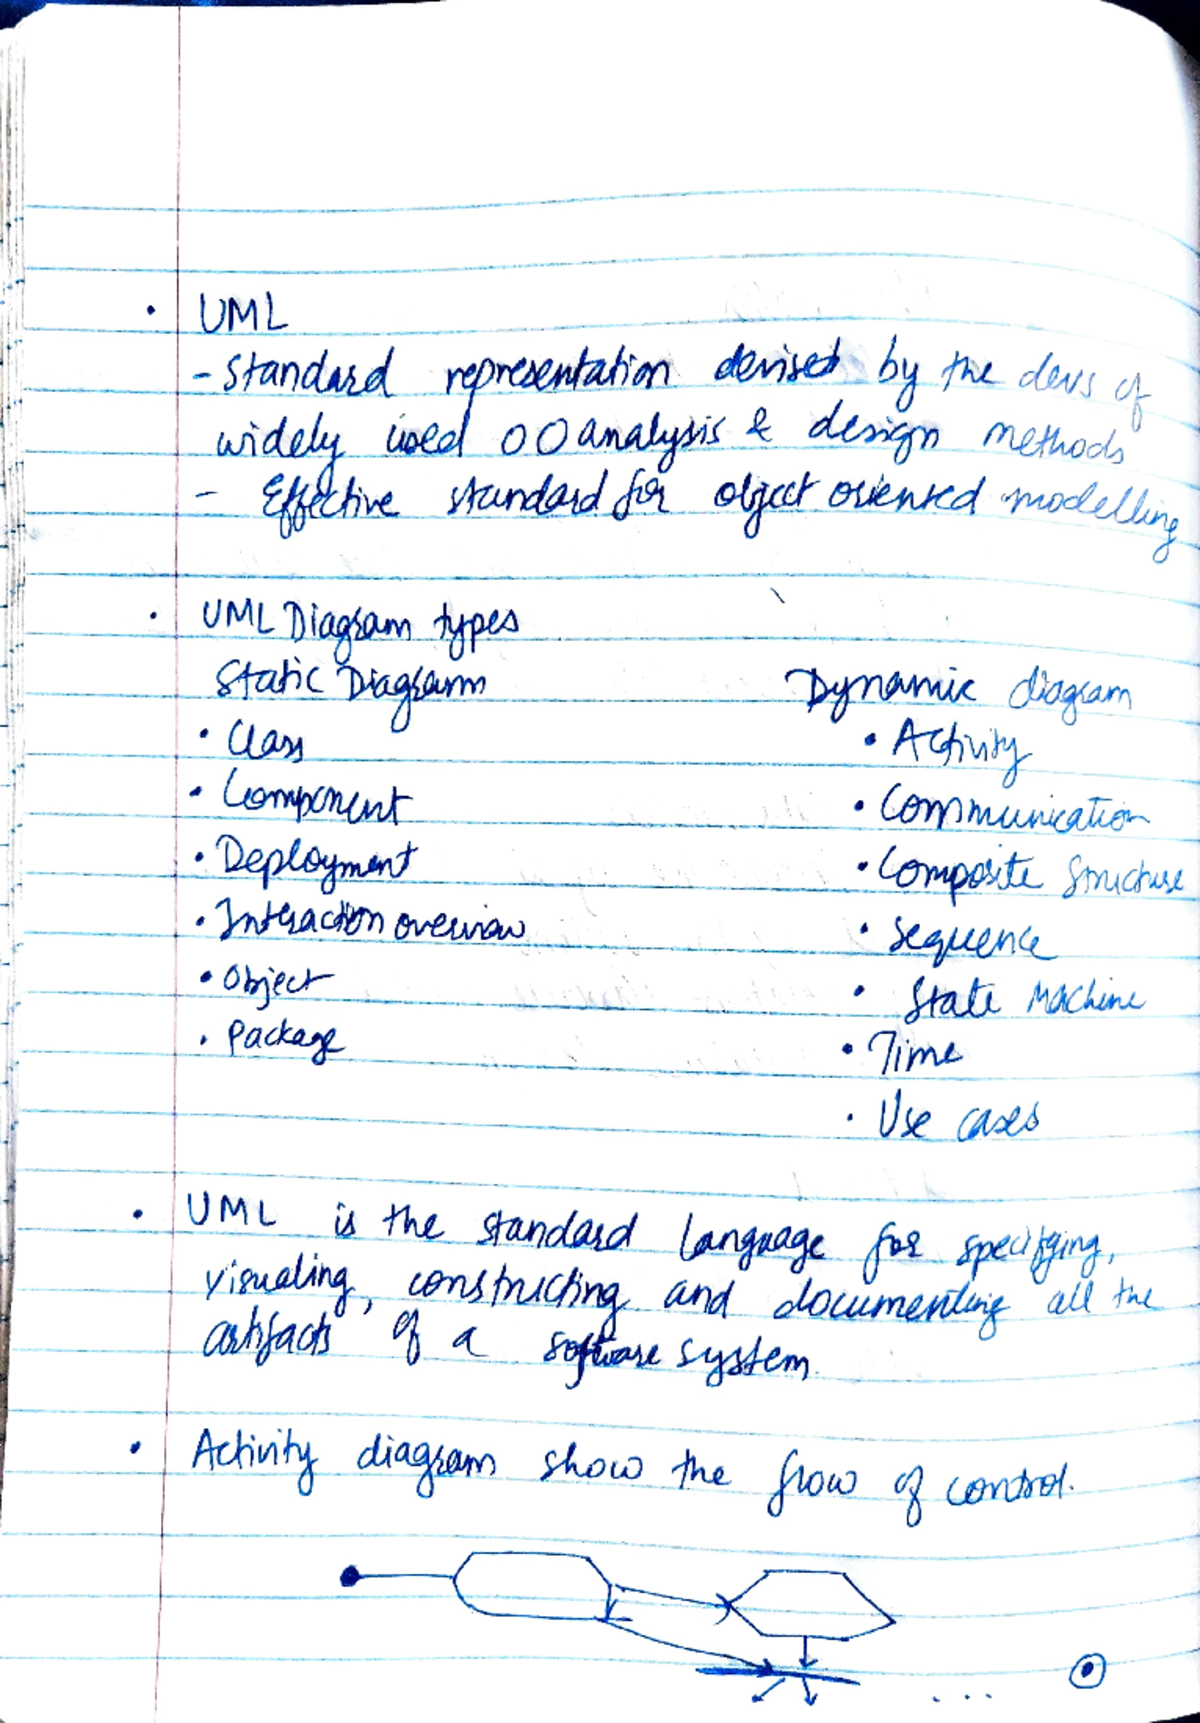 • UML
- Standard representation devised by the devs of
widely used OO analysis & design methods
- Effective standard for object oriented modelling
• UML Diagram types
Static Diagram
• Class
• Component
• Deployment
• Interaction overview
• Object
• Package
Dynamic diagram
• Activity
• Communication
• Composite Structure
• Sequence
• State Machine
• Time
• Use cases
• UML is the standard language for specifying,
visualing, constructing and documenting all the
artifacts of a software system.
• Activity diagram show the flow of control.
...